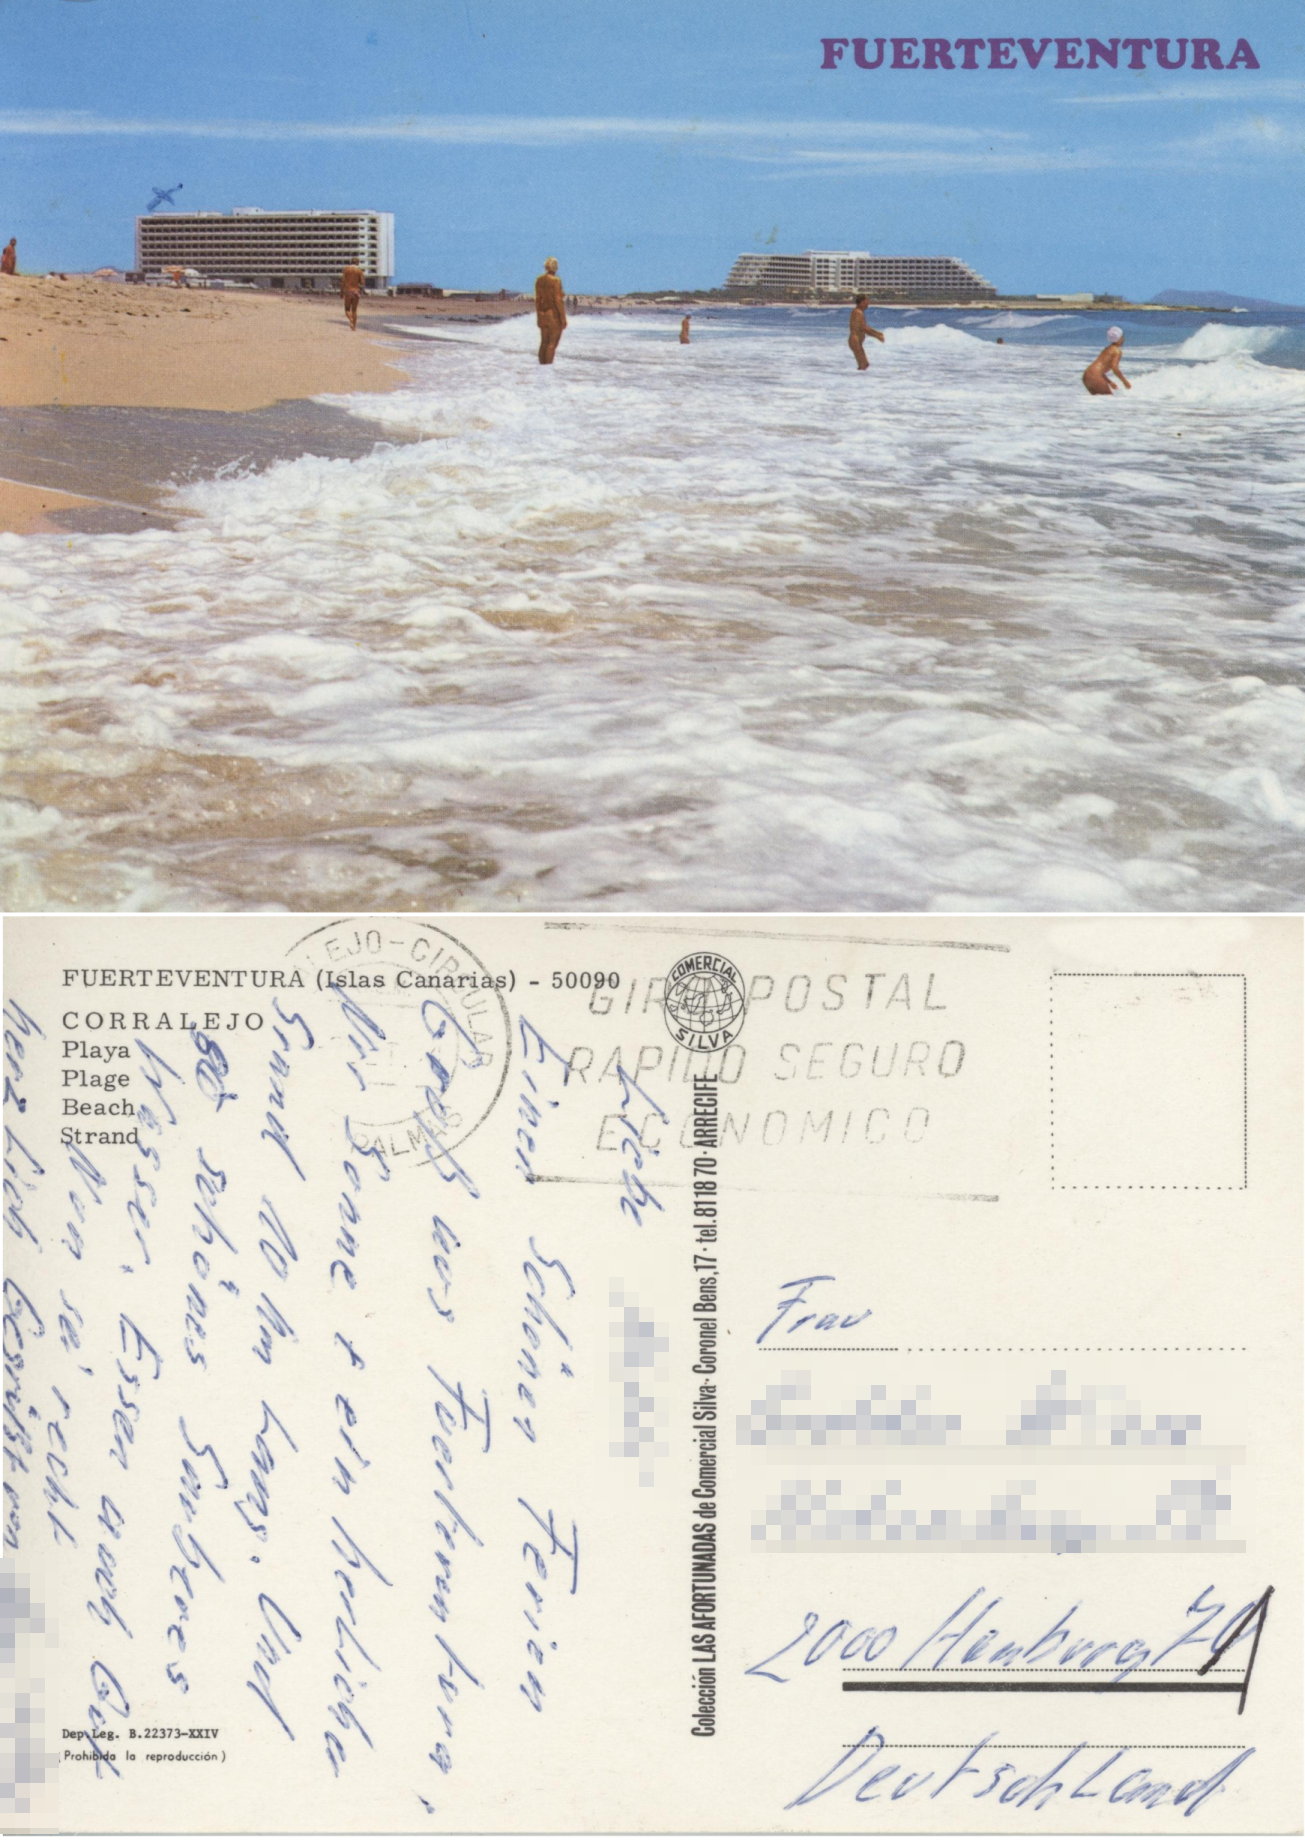 FUERTEVENTURA
FUERTEVENTURA (Islas Canarias) - 50090
CORRALEJO
Playa
Plage
Beach
Strand
EJO-CIRCULAR
PALMAS
COMERCIAL
SILVA
GIRO POSTAL
RAPIDO SEGURO
ECONOMICO
Liebe
Einen schönen Ferien
Gruß aus Fuerteventura.
Wir Sonne + ein herliche
Strand 10 km Lang. Und
schönes Sauberes
Wasser. Essen auch Gut
Nun sei recht
herzlich Gegrüßt von
Colección LAS AFORTUNADAS de Comercial Silva · Coronel Bens, 17 · tel. 81 18 70 · ARRECIFE
Frau
2000 Hamburg 70
Deutschland
Dep. Leg. B.22373-XXIV
(Prohibida la reproducción)